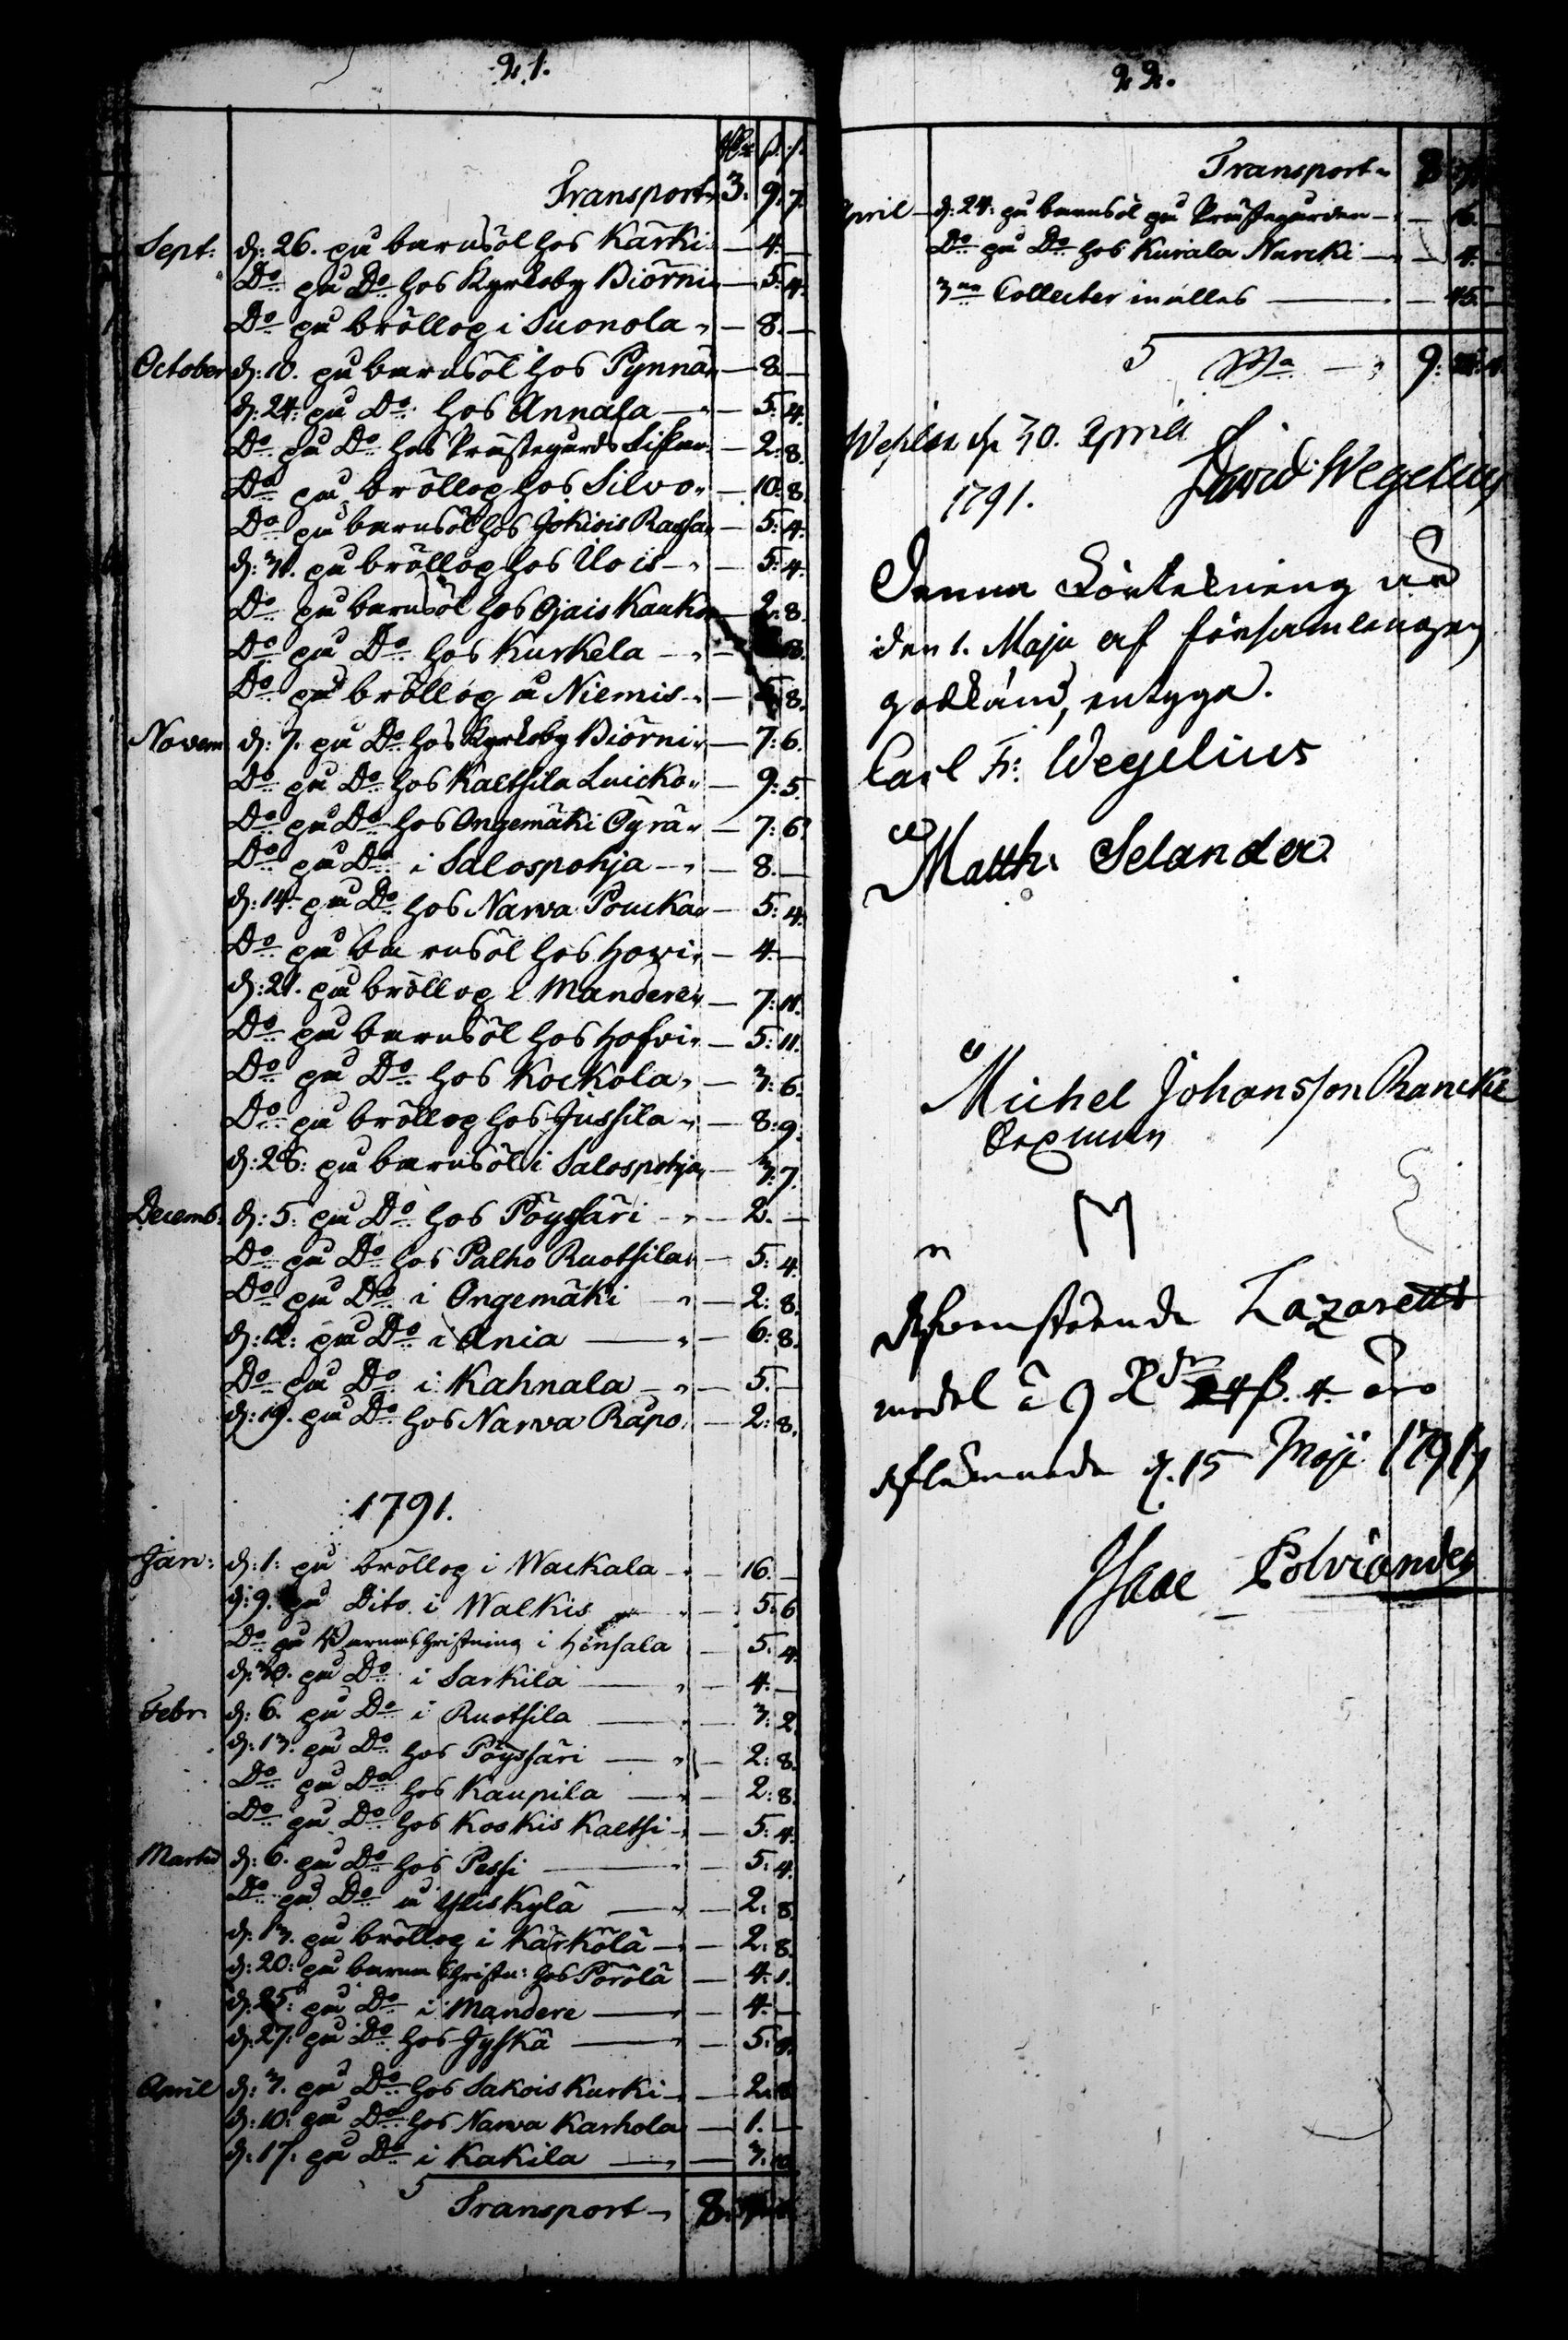 21.
Rdr ß. r.
Transport 3. 9. 7.
Sept: d: 26. på barnsöl hos Kärki — 4. —
Do på Do hos Kyrkoby Biörni — 5. 4.
Do på bröllop i Suonola — 8. —
October d: 10. på barnsöl hos Pynnä — 8. —
d: 24. på Do hos Annala — 5. 4.
Do på Do hos Prästegårds — 2. 8.
Do på bröllop hos Silvo — 10. 8.
Do på barnsöl hos Jokiois — 5: 4.
d: 31. på bröllop hos Uois — 5: 4.
Do på barnsöl hos Ojais Kauko — 2: 8.
Do på Do hos Kurkela — 8.
Do på bröllop å Niemis — 8.
Novem d: 7. på Do hos Kyrkoby Biörni — 7: 6.
Do på Do hos Kaltsila Luicko — 9: 5.
Do på Do hos Ongemäki Öyrä — 7: 6.
Do på Do i Salospohja — 8. —
d: 14. på Do hos Narva Poucka — 5: 4.
Do på barnsöl hos Howi — 4. —
d: 21. på bröllop i Mandere — 7: 11.
Do på barnsöl hos Hofvi — 5: 11.
Do på Do hos Kockola — 3: 6.
Do på bröllop hos Jussila — 8: 9.
d: 28: på barnsöl i Salospohja — 3: 7.
Decemb: d: 5: på Do hos Pöyssäri — 2. —
Do på Do hos Palho Ruotsila — 5: 4.
Do på Do i Ongemäki — 2: 8.
d: 12: på Do i Ania — 6: 8.
Do på Do i Kahnala — 5. —
d: 19. på Do hos Narva Räpo — 2: 8.
1791.
Jan: d: 1: på bröllop i Wackala — 16. —
d: 9. på Dito i Walkis — 5: 6
Do på Barnachristning i Hinsala — 5. 4.
d: 30. på Do i Sarkila — 4. —
Febr. d: 6. på Do i Ruotsila — 3: 2.
d: 13. på Do hos Pöyssäri — 2: 8.
Do på Do hos Kaupila — 2: 8.
Do på Do hos Koskis Kaltsi — 5: 4.
Martii d: 6. på Do hos Pessi — 5: 4.
Do på Do å Yliskylä — 2: 8.
d: 13. på bröllop i Kärkölä — 2: 8.
d: 20: på barna Christn: hos Pörölä — 4. 1.
d: 25: på Do i Mandere — 4. —
d: 27: på Do hos Jyskä — 5:
April d: 3. på Do hos Sakois Kurki — 2: 8
d: 10: på Do hos Narva Karhola — 1. —
d: 17: på Do i Kakila — 3. 10
Transport 8.
22.
Transport 8
April d: 24: på barnsöl på Prästegården — 16. —
Do på Do hos Kurala Nurcki — 4. —
3ne Collecter in alles — 45. —
Sma 9:
d. 30. April
1791.
David Wegelius
Denna Förtekning är
den 1. Maji af församlingen
godkänd, intyga.
Carl Fr: Wegelius
Matth: Selander
Michel Johansson
M
Ofvanstående Lazaretts
medel à 9 Rdr 24 ß. 4. äro
aflämnade d. 15 Maji 1791,
Isaac Polviander